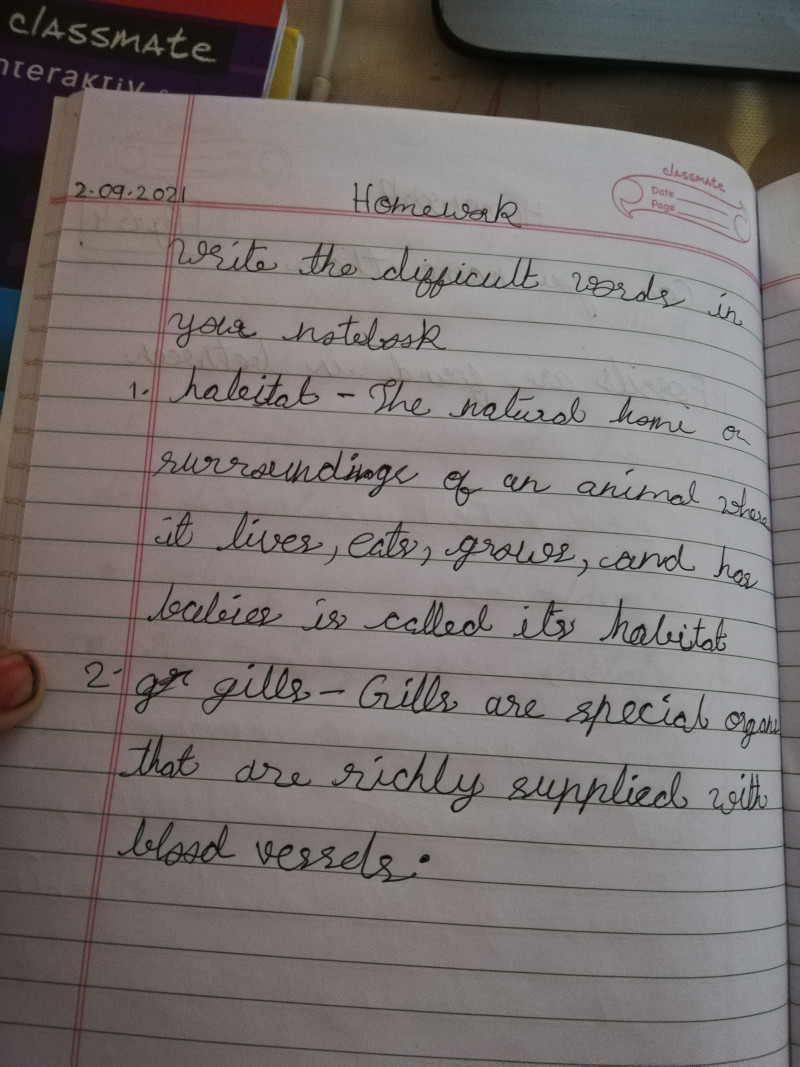 classmate
nteraktiv
classmate
Date
Page
2.09.2021
Homework
Write the difficult words in
your notebook
1. habitat - The natural home or
surroundings of an animal where
it lives, eats, grows, and has
babies is called its habitat
2. gr gills - Gills are special organs
that are richly supplied with
blood vessels.